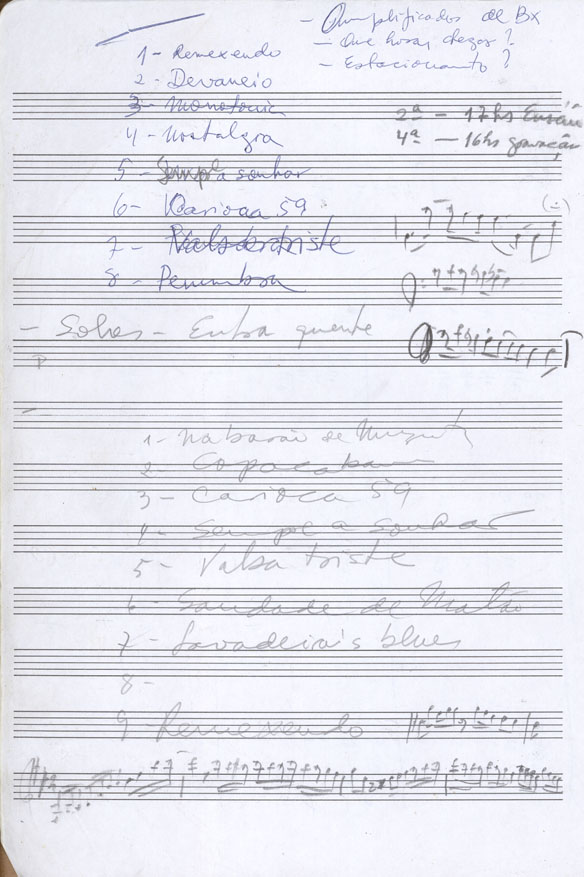 - Amplificador de BX
- Que horas chegar?
- Estacionamento?
1 - Remexendo
2 - Devaneio
3 - Monotonia
4 - Nostalgia
5 - Sempre a sonhar
6 - Carioca 59
7 - Valsa triste
8 - Penumbra
2ª - 17hs Ensaio
4ª - 16hs gravação
- Solos - Entra quente
1 - Na barão de Mesquita
2 - Copacabana
3 - Carioca 59
4 - Sempre a sonhar
5 - Valsa triste
6 - Saudade de Matão
7 - Lavadeira's blues
8 -
9 - Remexendo